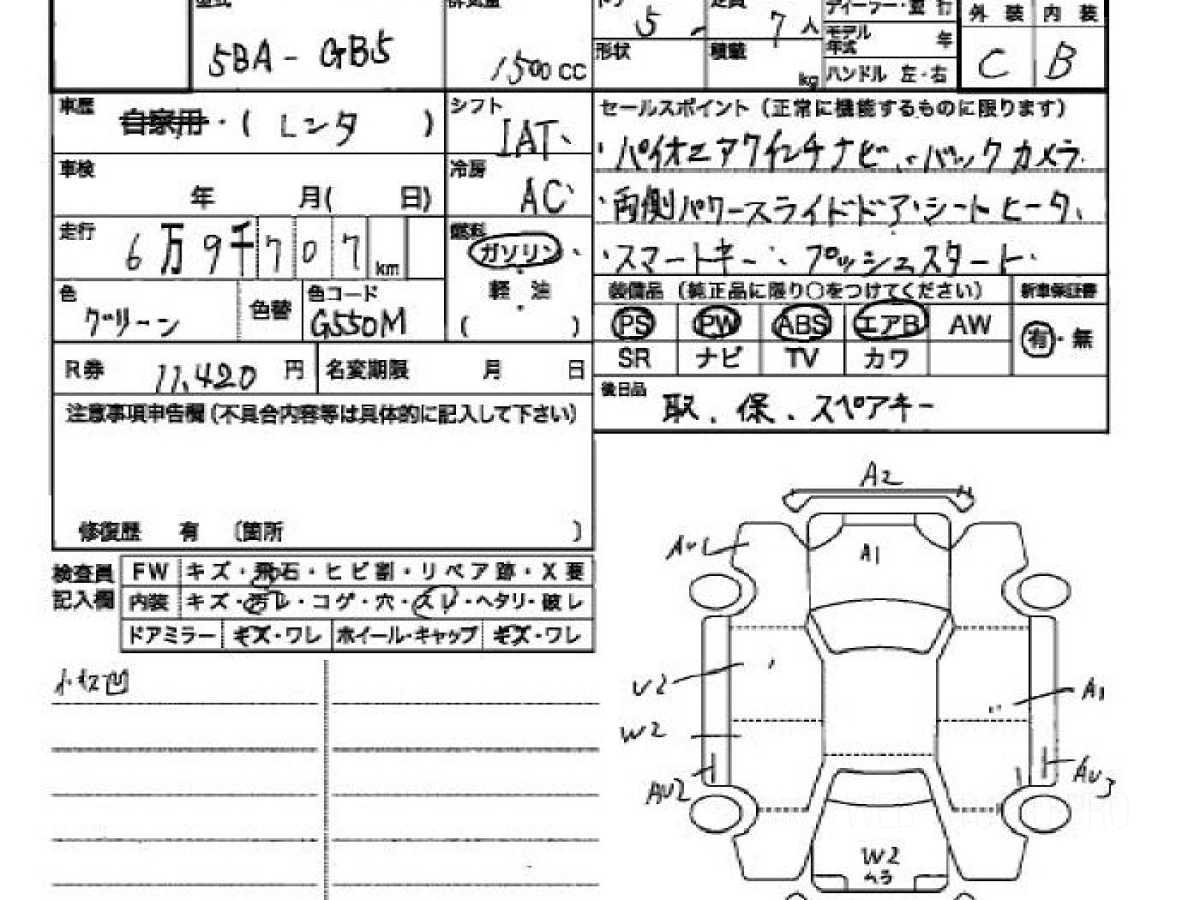 型式
5BA-GB5
排気量
1500 cc
ドア 5
定員 7 人
ディーラー・並行
モデル年式 年
形状
積載 kg
ハンドル 左・右
外装 内装
C B
車歴 自家用・( レンタ )
シフト IAT
車検 年 月( 日)
冷房 AC
走行 6万9千707 km
燃料 ガソリン
軽・油
( )
色 グリーン
色替
色コード G550M
R券 11,420 円
名変期限 月 日
セールスポイント(正常に機能するものに限ります)
・パイオニア7インチナビ・バックカメラ
・両側パワースライドドア・シートヒータ
・スマートキー・プッシュスタート・
装備品(純正品に限り○をつけてください) 新車保証書
PS PW ABS エアB AW
有・無
SR ナビ TV カワ
後日品 取、保、スペアキー
注意事項申告欄(不具合内容等は具体的に記入して下さい)
修復歴 有 〔箇所 〕
検査員記入欄
FW キズ・飛石・ヒビ割・リペア跡・X要
内装 キズ・汚レ・コゲ・穴・スレ・ヘタリ・破レ
ドアミラー キズ・ワレ ホイール・キャップ キズ・ワレ
小キズ凹
A2
AU1
A1
U2
A1
W2
AU2
AU3
W2